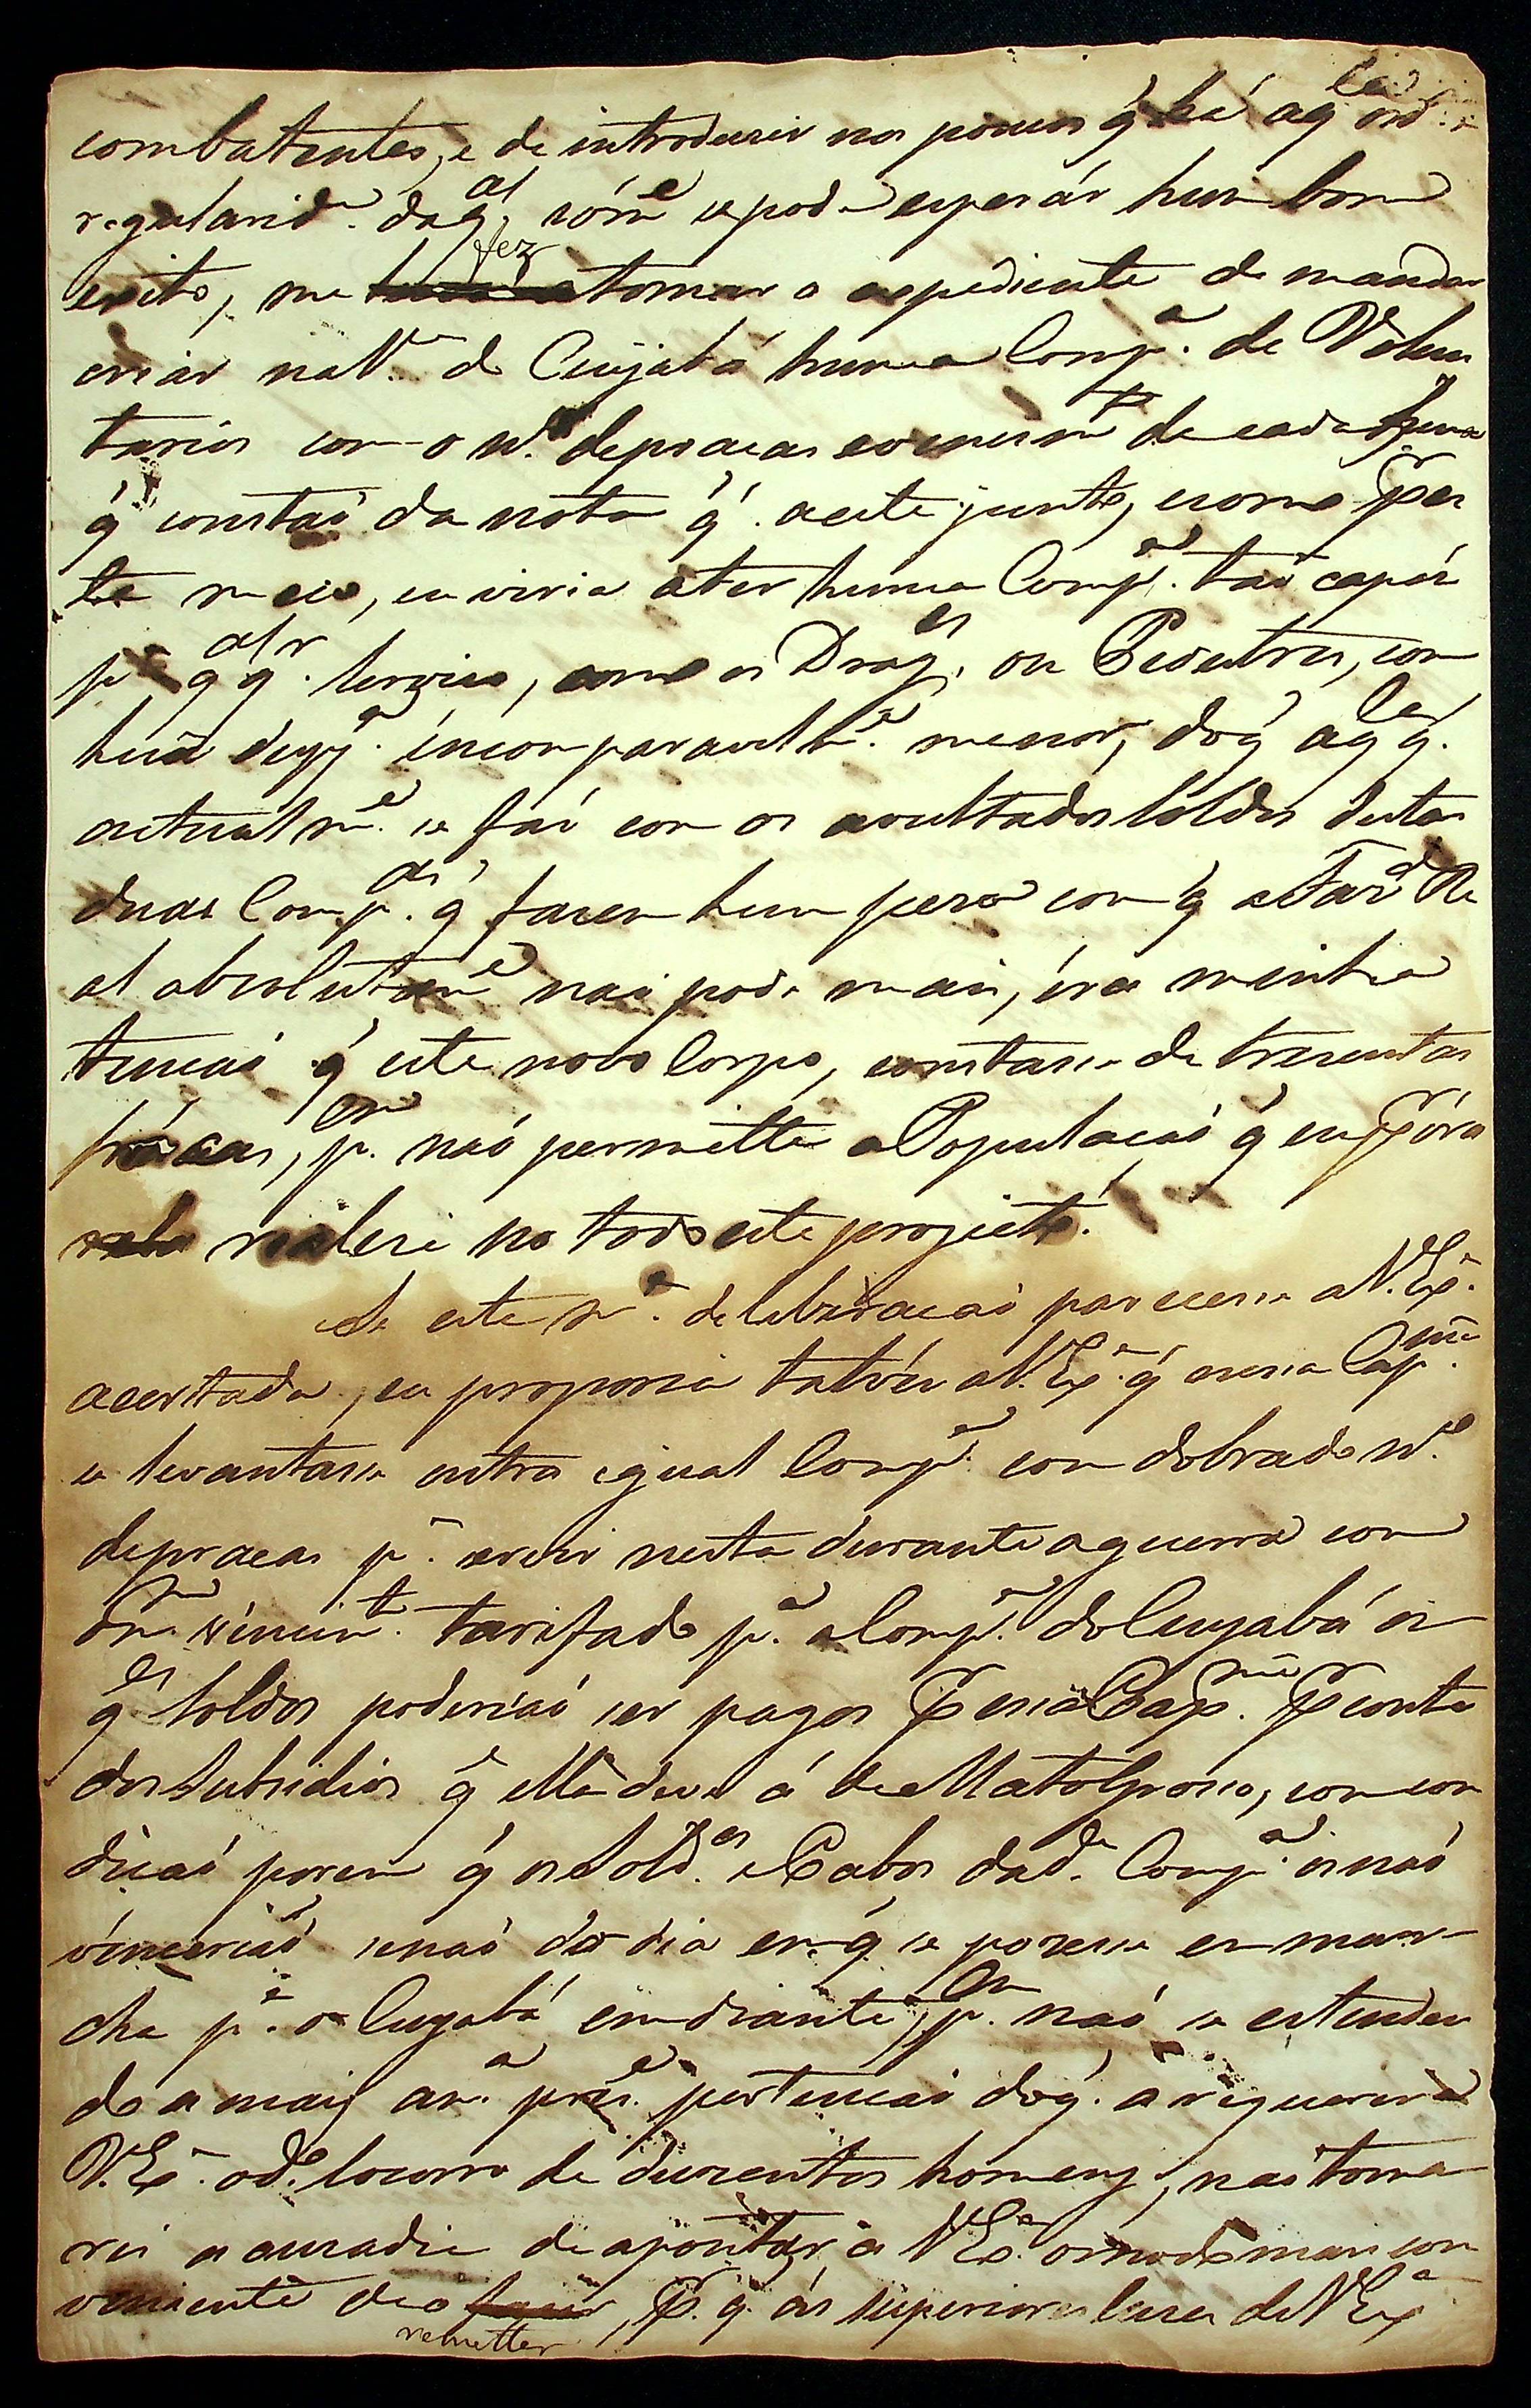 combatentes, e de introduzir nos poucos q̃ há aq.la ord.
regularid.e da q.al só m.e se pode esperár hum bom
exito, me fez tomar o expediente de mandar
criar na V.a de Cuyabá huma Comp.a de Volun
tarios com o N.o de praças e vencim.to de cada huma
q̃ constaõ da nota q̃ a este junto, e como por
te meio, eu viria a ter huma Comp.a taõ capáz
p.a q.al q.r serviço, como os Drag.es ou Pedestres, com
huã desp.a incomparavelm.e menor, do q̃ aq.la q̃.
actualm.e se fáz com os avultados soldos destas
duas Comp.as q̃ fazem hum pezo com q̃ a Faz.da Re
al absolutam.e naõ pode mais, éra minha
tençaõ q̃ este novo Corpo, constasse de trezentas
práças, p.em naõ permitte a Populaçaõ q̃ eu ponha
realize no todo este projecto.
Se este m.a deliberaçaõ parecesse a V. Ex.a
acertada, eu proporia talvéz a V. Ex.a q̃ nessa Cap.nia
se levantasse outra igual Comp.a com dobrado N.o
de praças p.a servir nesta durante a guerra com
o m.mo vencim.to tarifado p.a a Comp.a do Cuyabá os
q.es soldos poderiaõ ser pagos p.r essa Cap.nia p.r conta
dos Subsidios q̃ ella deve á de Matogrosso, com con
diçaõ porem q̃ os Sold.os e Cabos da d.a Comp.a os naõ
venceriaõ senaõ do dia em q̃ se pozesse em mar
cha p.a o Cuyabá em diante, p.em naõ se estenden
do a mais a m.a prez.e pertençaõ do q̃. a requerer a
V. Ex.a o d.o Socorro de duzentos homens, naõ toma
rei a ouzadia de apontar a V. Ex.a o modo mais con
veniente de o remetter, p.r q̃. ás superiores luzes de V. Ex.a